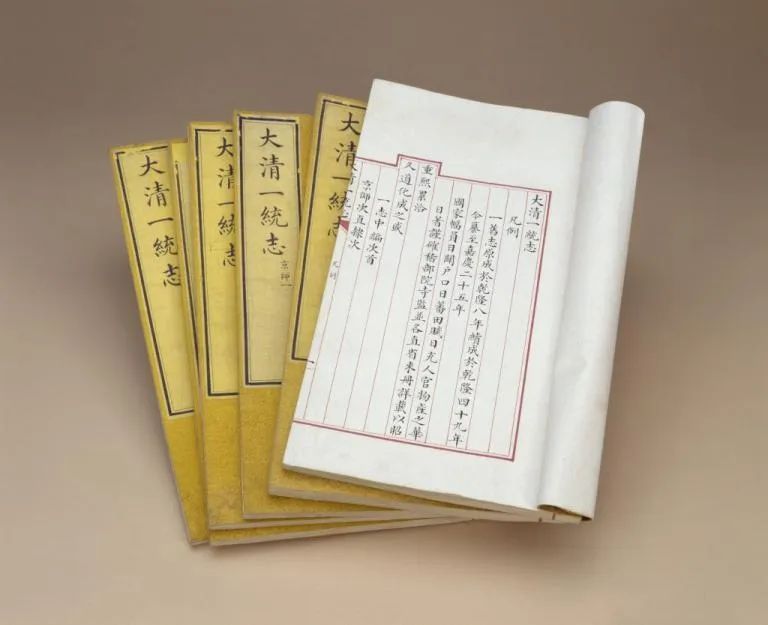 大清一統志
凡例
一舊志原成於乾隆八年續成於乾隆四十九年
今纂至嘉慶二十五年
國家幅員日闢户口日蕃田賦日充人官物產之華
日著謹確稽部院寺監並各直省來冊詳載以昭
重熙累洽
久道化成之盛
一志中編次首
京師次直隸次
大清一統志
凡例
大清一統志
大清一統志
京師一
大清一統志
大清一統志